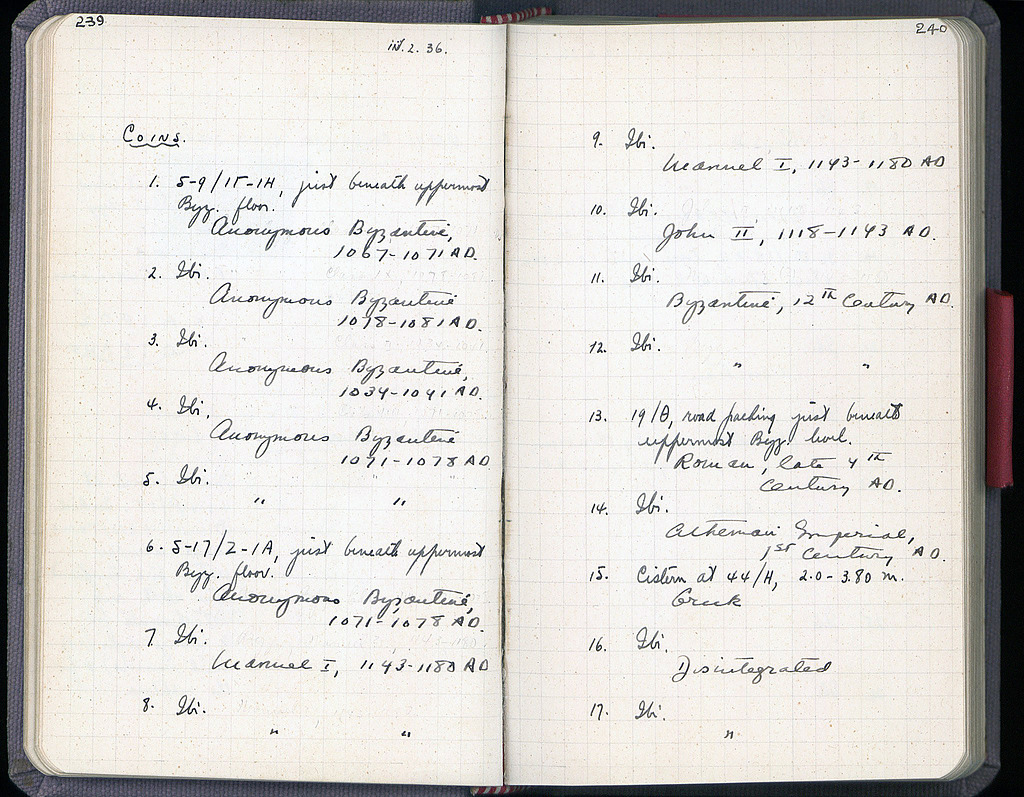 239
IV. 2. 36.
Coins.
1. 5-9/ΙΓ-ΙΗ, just beneath uppermost
Byz. floor.
Anonymous Byzantine,
1067-1071 AD.
2. Ibi.
Anonymous Byzantine
1078-1081 AD.
3. Ibi.
Anonymous Byzantine,
1034-1041 AD.
4. Ibi.
Anonymous Byzantine
1071-1078 AD
5. Ibi.
" "
6. 5-17/2-1A, just beneath uppermost
Byz. floor.
Anonymous Byzantine,
1071-1078 AD.
7. Ibi.
Manuel I, 1143-1180 AD
8. Ibi.
" "
240
9. Ibi.
Manuel I, 1143-1180 AD
10. Ibi.
John II, 1118-1143 AD.
11. Ibi.
Byzantine, 12th Century AD.
12. Ibi.
" "
13. 19/Θ, road packing just beneath
uppermost Byz. level.
Roman, late 4th
Century AD.
14. Ibi.
Athenian Imperial,
1st Century AD.
15. Cistern at 44/H, 2.0-3.80 m.
Greek
16. Ibi.
Disintegrated
17. Ibi.
"